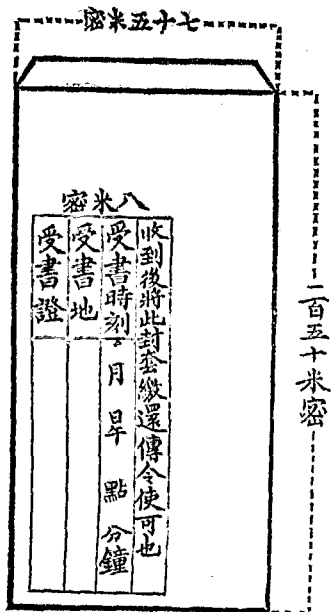 七十五米密
二百五十米密
八米密
收到後將此封套繳還傳令使可也
受書時刻 月 日午 點 分鐘
受書地
受書證